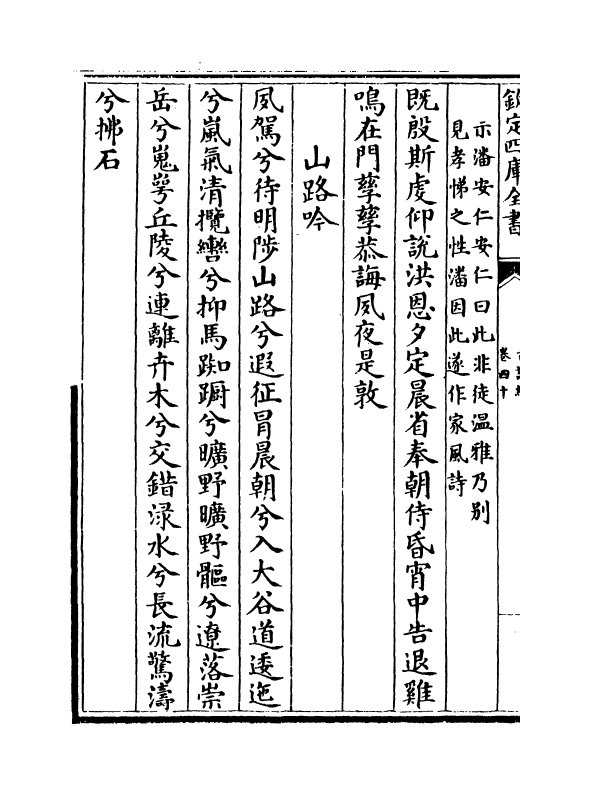 欽定四庫全書
卷四十
示潘安仁安仁曰此非徒温雅乃别
見孝悌之性潘因此遂作家風詩
既殷斯虔仰說洪恩夕定晨省奉朝侍昏宵中告退雞
鳴在門孳孳恭誨夙夜是敦
山路吟
夙駕兮待明陟山路兮遐征冐晨朝兮入大谷道逶迤
兮嵐氣清攬轡兮抑馬踟蹰兮曠野曠野䮍兮遼落崇
岳兮嵬㟧丘陵兮連離卉木兮交錯渌水兮長流驚濤
兮拂石